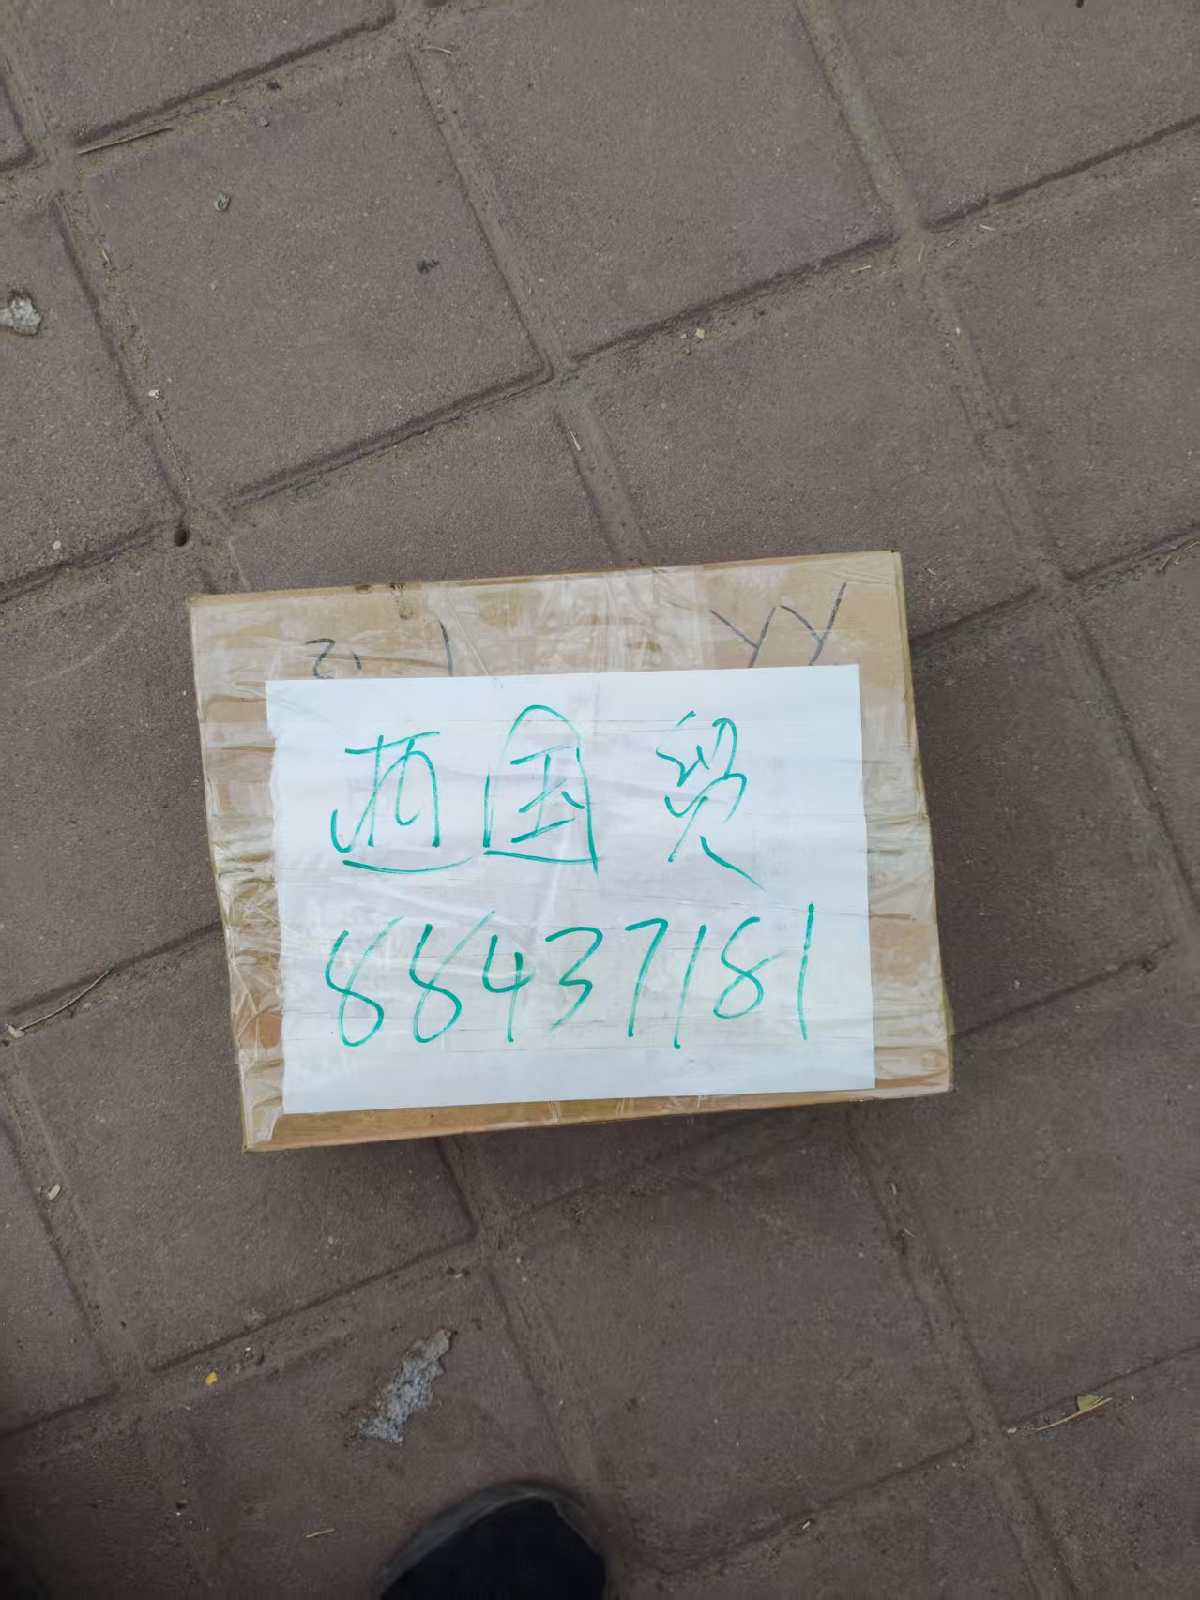 YY
西国贸
88437181